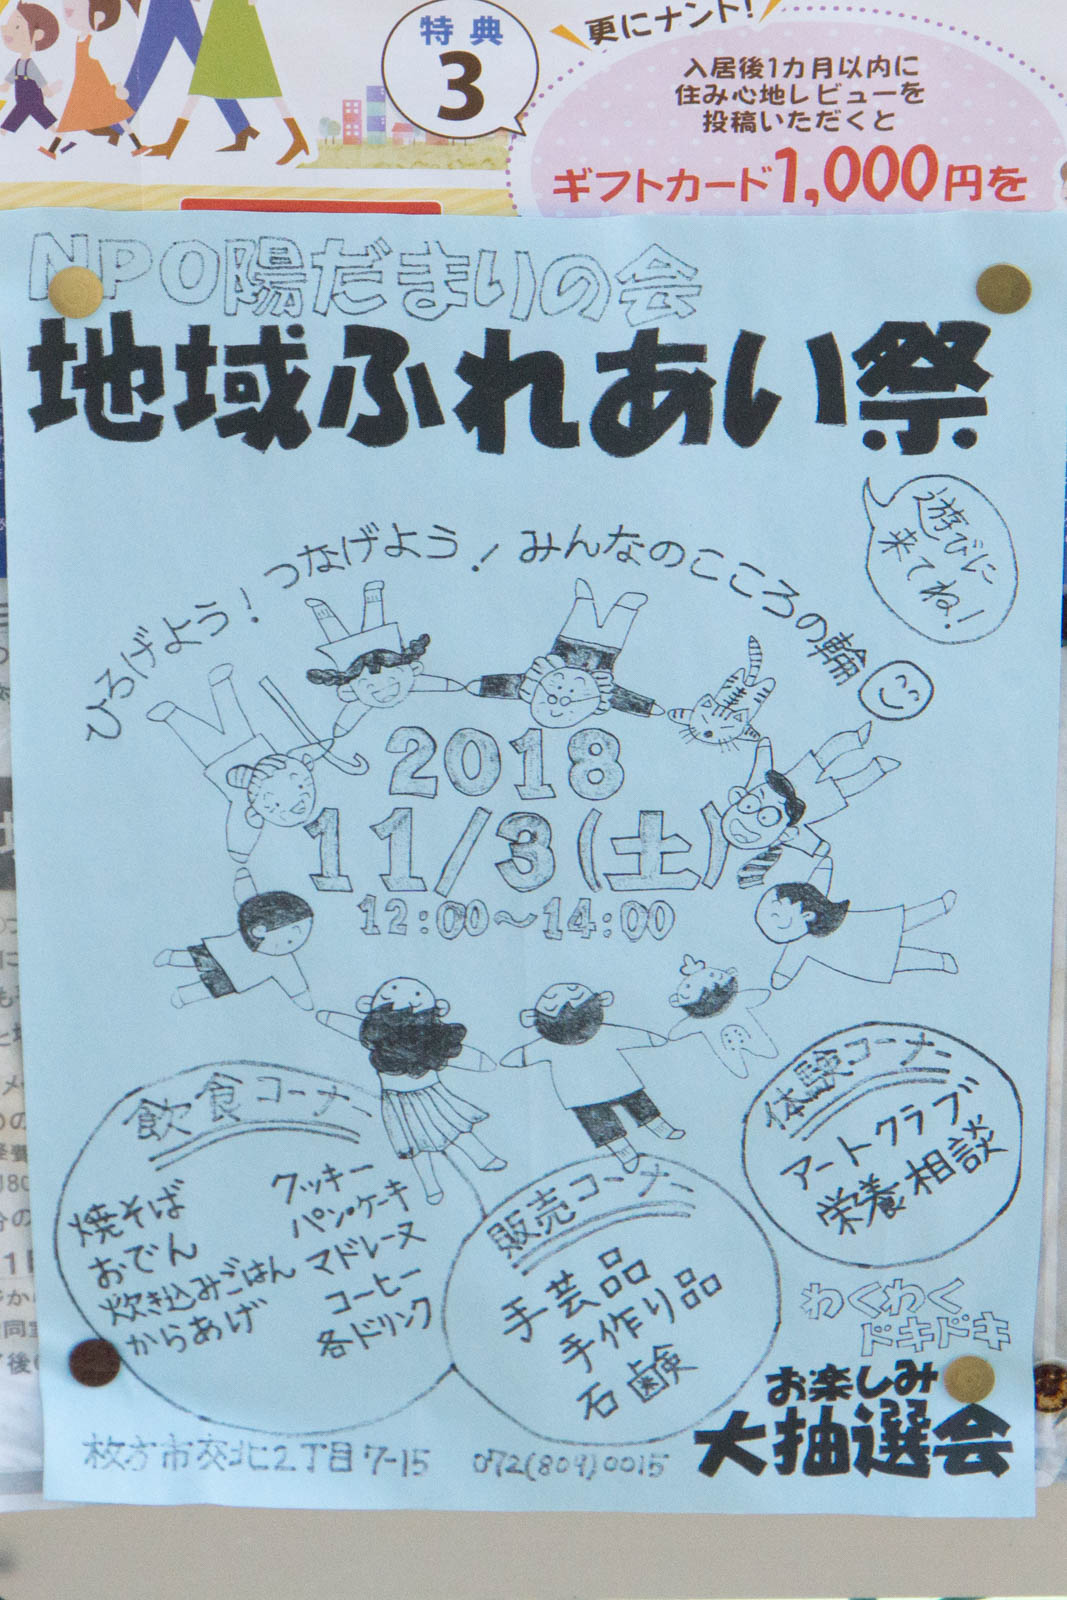 特典
3
更にナント!
入居後1カ月以内に
住み心地レビューを
投稿いただくと
ギフトカード1,000円を
NPO陽だまりの会
地域ふれあい祭
遊びに
来てね!
ひろげよう!つなげよう!みんなのこころの輪
2018
11/3(土)
12:00〜14:00
飲食コーナー
焼そば
おでん
炊き込みごはん
からあげ
クッキー
パンケーキ
マドレーヌ
コーヒー
各ドリンク
販売コーナー
手芸品
手作り品
石鹸
体験コーナー
アートクラブ
栄養相談
わくわく
ドキドキ
お楽しみ
大抽選会
枚方市交北2丁目7-15 072(809)0015